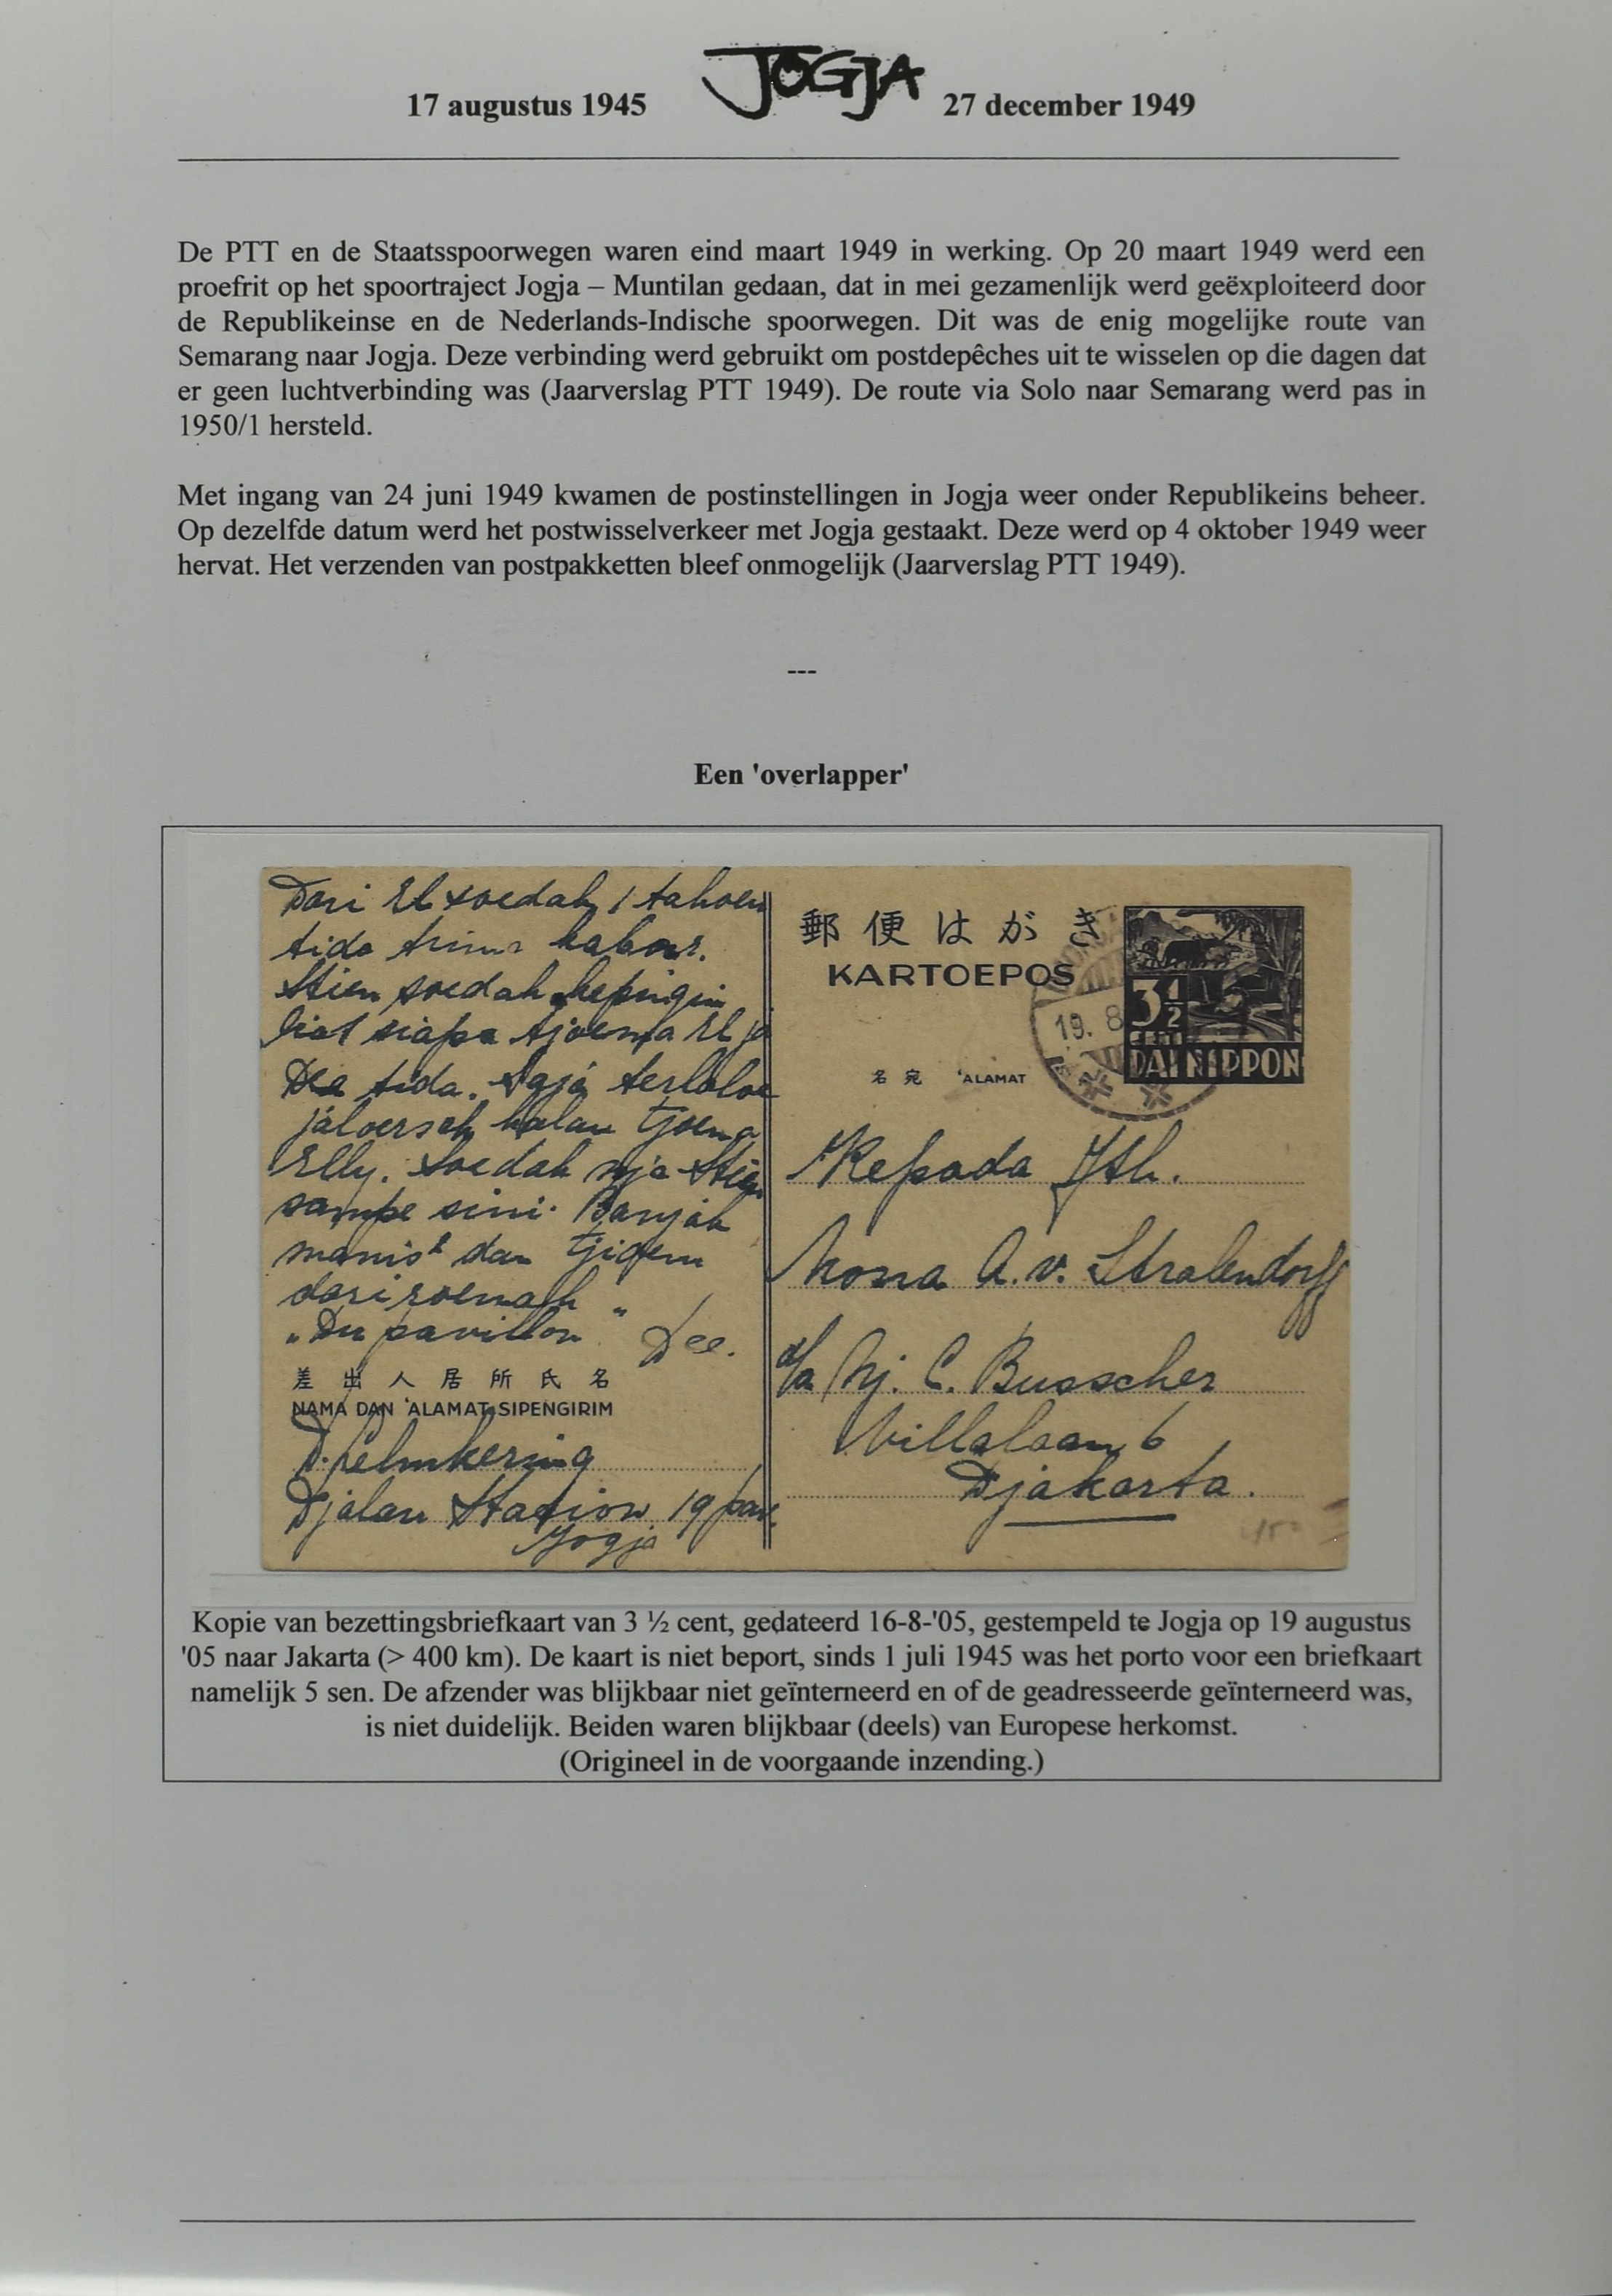 17 augustus 1945 JOGJA 27 december 1949
De PTT en de Staatsspoorwegen waren eind maart 1949 in werking. Op 20 maart 1949 werd een
proefrit op het spoortraject Jogja – Muntilan gedaan, dat in mei gezamenlijk werd geëxploiteerd door
de Republikeinse en de Nederlands-Indische spoorwegen. Dit was de enig mogelijke route van
Semarang naar Jogja. Deze verbinding werd gebruikt om postdepêches uit te wisselen op die dagen dat
er geen luchtverbinding was (Jaarverslag PTT 1949). De route via Solo naar Semarang werd pas in
1950/1 hersteld.
Met ingang van 24 juni 1949 kwamen de postinstellingen in Jogja weer onder Republikeins beheer.
Op dezelfde datum werd het postwisselverkeer met Jogja gestaakt. Deze werd op 4 oktober 1949 weer
hervat. Het verzenden van postpakketten bleef onmogelijk (Jaarverslag PTT 1949).
---
Een 'overlapper'
Dari El soedah 1 tahoen
tida trima kabar.
Stien soedah kepingin
liat siapa tjoema El ja
Dea tida. Saja terlaloe
jaloersch kalau tjoema
Elly. Soedah nja Stien
sampe sini. Banjak
manis² dan tjioem
dari roemah
„Du pavillon" Dee.
差出人居所氏名
NAMA DAN 'ALAMAT SIPENGIRIM
Djalan Station 19 pav.
Jogja
郵便はがき
KARTOEPOS
19. 8
3½
CENT
DAI NIPPON
名宛 'ALAMAT
Kepada Jth.
Nona A. v. Stralendorff
d/a Nj. C. Busscher
Villalaan 6
Djakarta.
Kopie van bezettingsbriefkaart van 3 ½ cent, gedateerd 16-8-'05, gestempeld te Jogja op 19 augustus
'05 naar Jakarta (> 400 km). De kaart is niet beport, sinds 1 juli 1945 was het porto voor een briefkaart
namelijk 5 sen. De afzender was blijkbaar niet geïnterneerd en of de geadresseerde geïnterneerd was,
is niet duidelijk. Beiden waren blijkbaar (deels) van Europese herkomst.
(Origineel in de voorgaande inzending.)